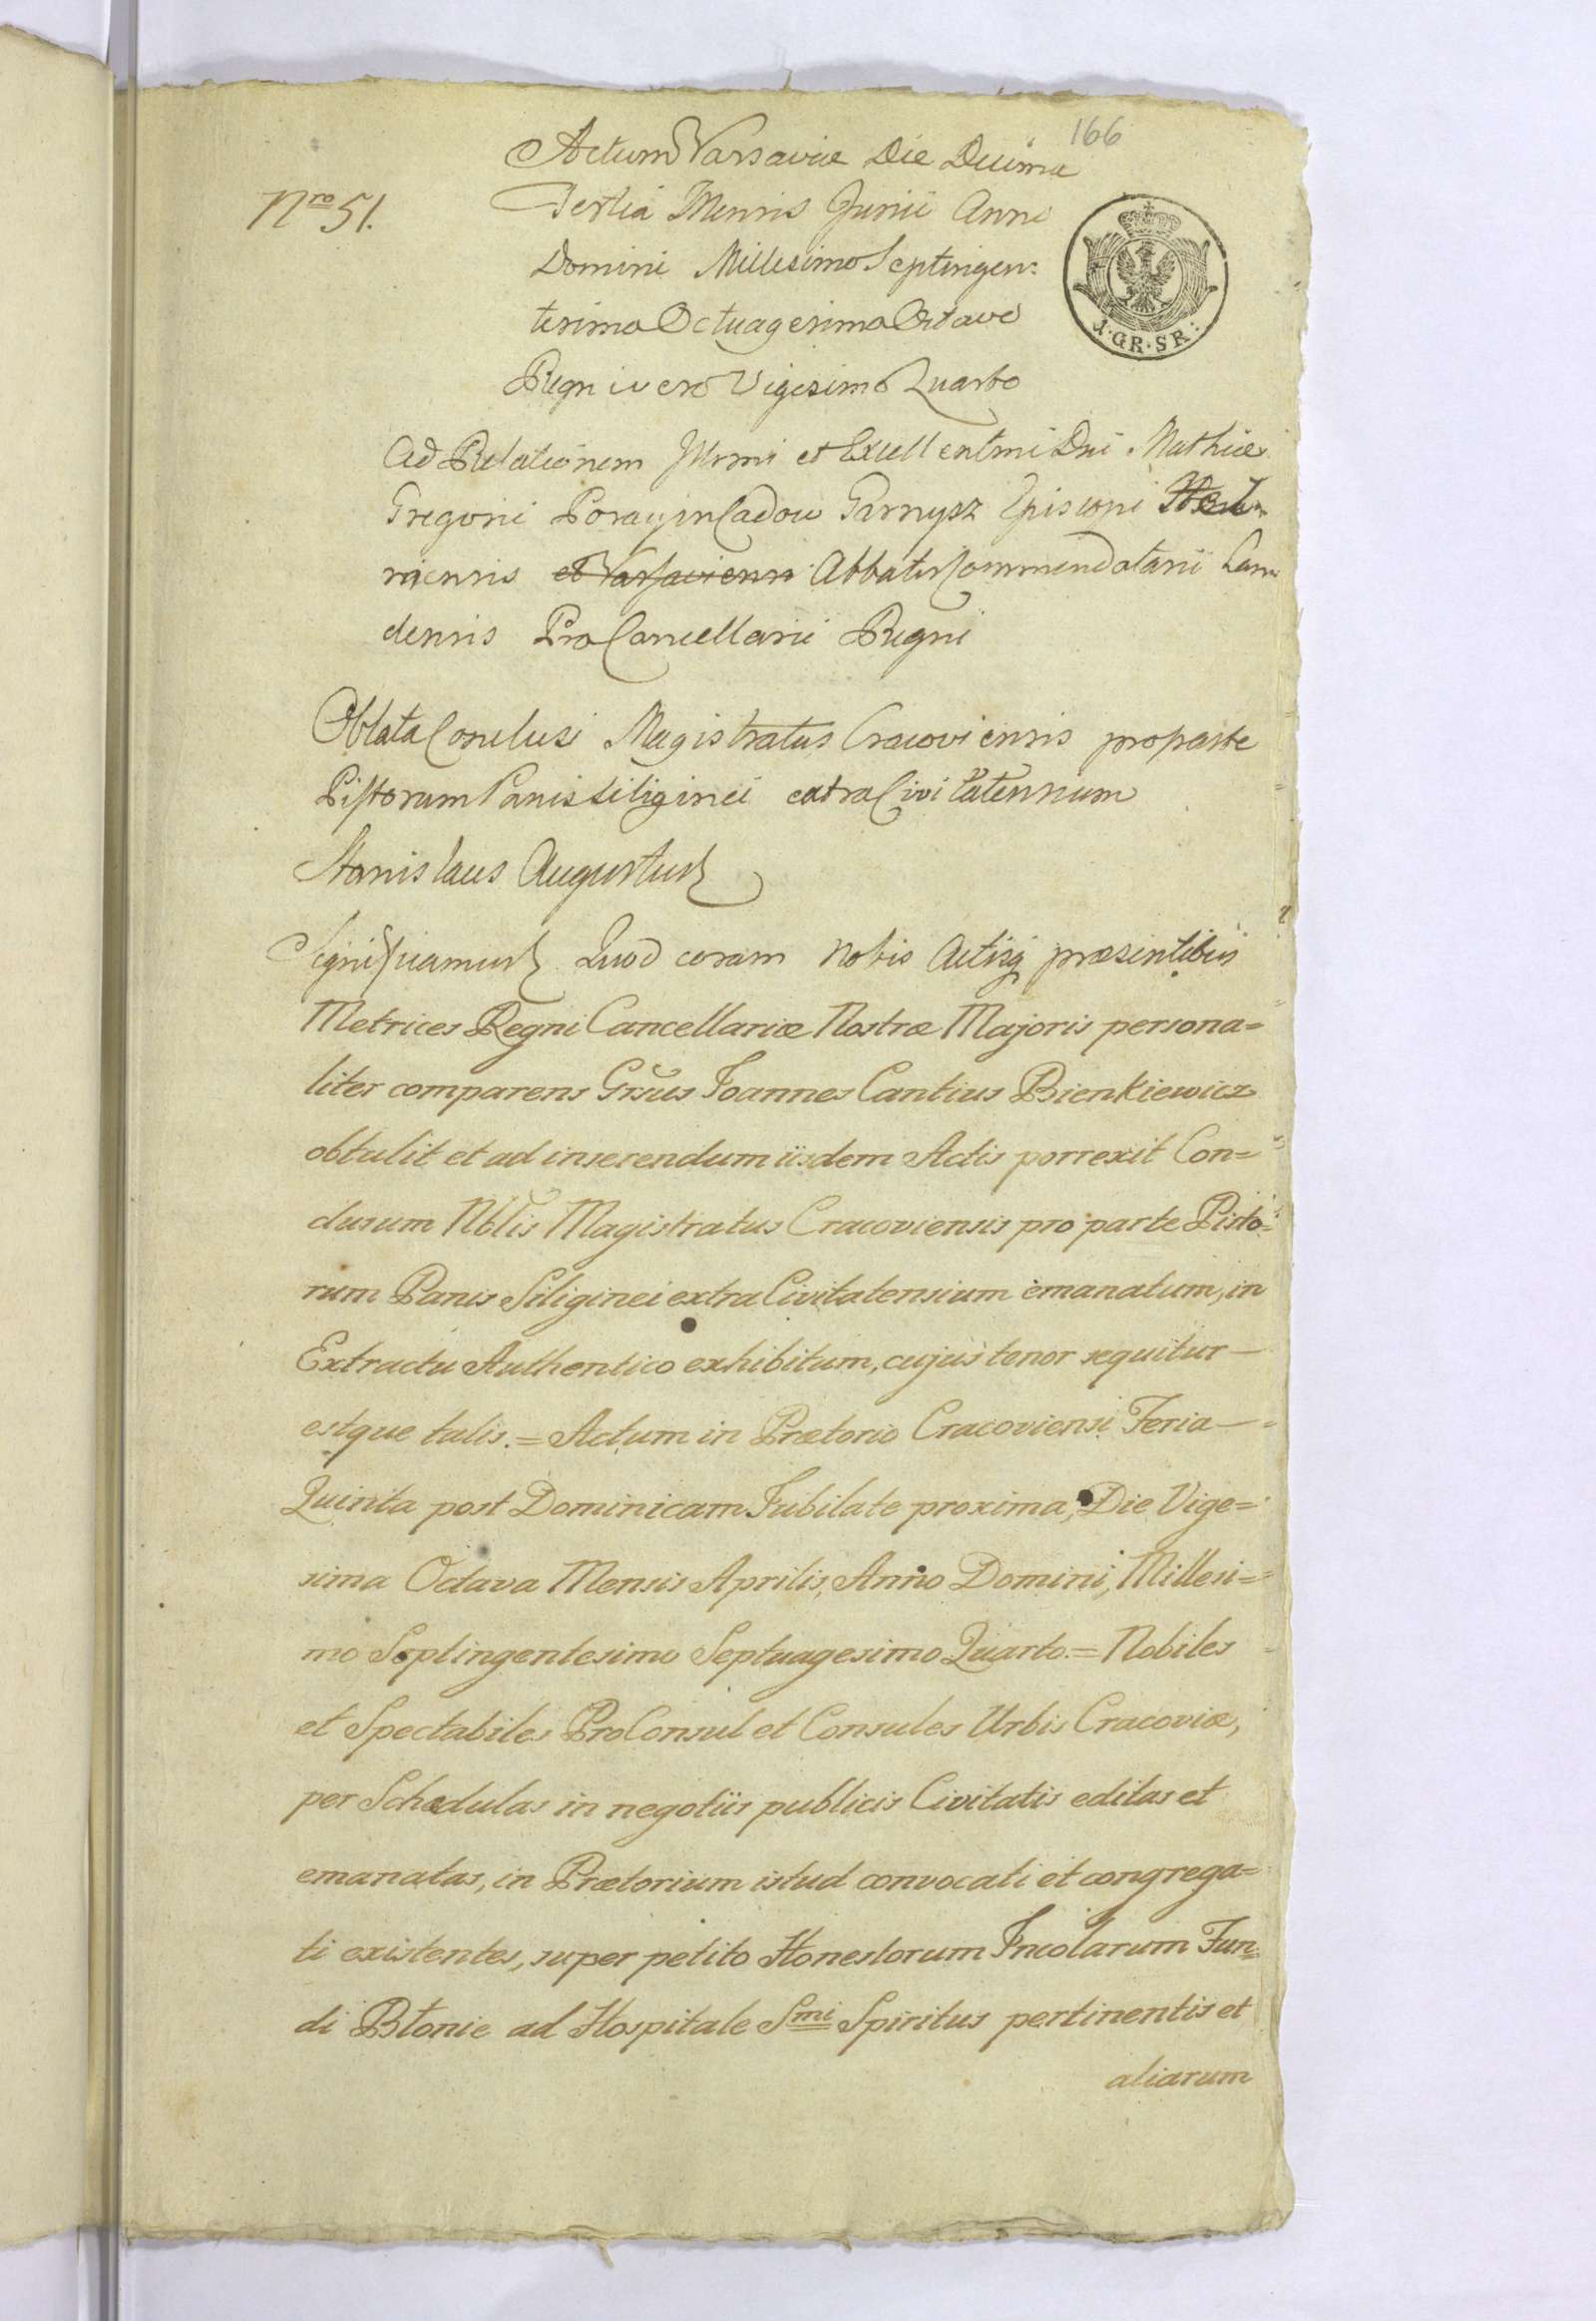 166
Actum Varsaviæ Die Decima
Nro 51.
Tertia Mensis Junii Anno
Domini Millesimo Septingen=
tesimo Octuagesimo Octavo
Regni vero Vigesimo Quarto
1. GR. SR:
Ad Relationem Illmi et Excellentmi Dni Mathiæ
Gregorii Poray in Radow Garnysz Episcopi
mensis et Varsaviensis Abbatis Commendatarii Lan
densis ProCancellarii Regni
Oblata Conclusi Magistratus Cracoviensis pro parte
Pistorum Panis Siliginei extra Civitatensium
Stanislaus Augustus
Significamus Quod coram Nobis Actisq præsentibus
Metrices Regni Cancellariæ Nostræ Majoris persona=
liter comparens Gnsus Joannes Cantius Bienkiewicz
obtulit et ad inserendum iisdem Actis porrexit Con=
clusum Nblis Magistratus Cracoviensis pro parte Pisto=
rum Panis Siliginei extra Civitatensium emanatum, in
Extractu Authentico exhibitum, cujus tenor sequitur —
estque talis. = Actum in Prætorio Cracoviensi Feria —
Quinta post Dominicam Jubilate proxima, Die Vige=
sima Octava Mensis Aprilis, Anno Domini, Millesi=
mo Septingentesimo Septuagesimo Quarto. = Nobiles
et Spectabiles ProConsul et Consules Urbis Cracoviæ,
per Schedulas in negotiis publicis Civitatis editas et
emanatas, in Prætorium istud convocati et congrega=
ti existentes, super petito Honestorum Incolarum Fun=
di Błonie ad Hospitale Smi Spiritus pertinentis et
aliarum